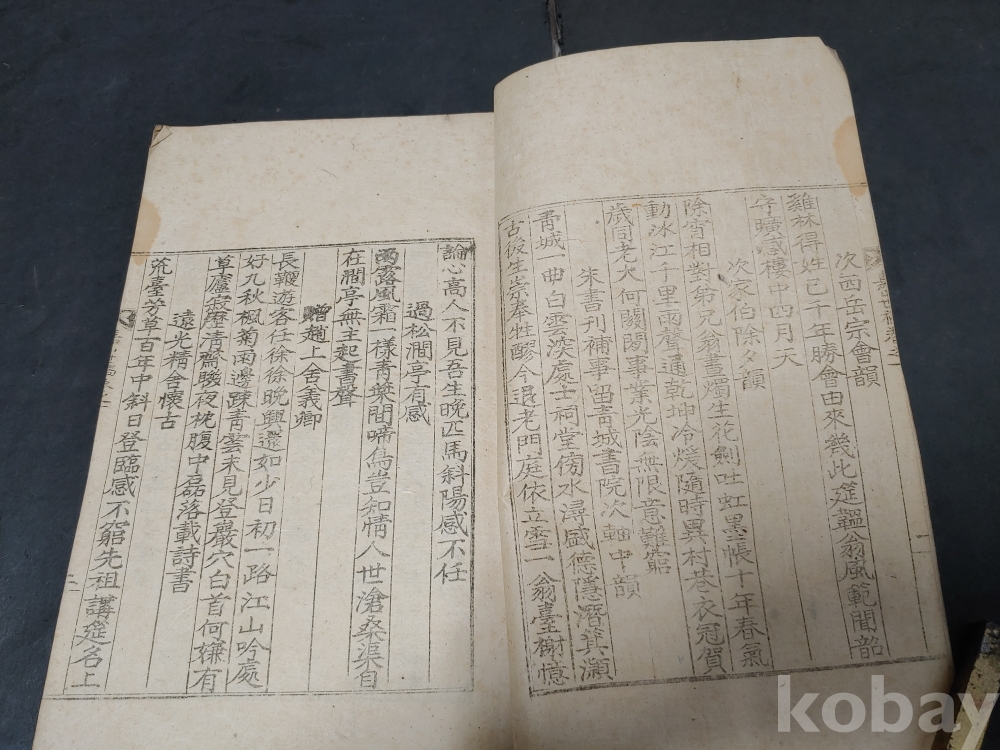 次西岳宗會韻
雞林得姓已千年勝會由來幾此筵韞翁風範聞韶
守曠感樓中四月天
次家伯除夕韻
除宵相對弟兄翁畫燭生花劍吐虹墨帳十年春氣
動冰江千里雨聲通乾坤冷煖隨時異村巷衣冠賀
歲同老大何關閑事業光陰無限意難窮
朱書刊補事留靑城書院次軸中韻
靑城一曲白雲深處士祠堂傍水潯盛德隱潛箕潁
古後生崇奉牲醪今退老門庭依立雪一翁臺榭憶
論心高人不見吾生晩匹馬斜陽感不任
過松澗亭有感
雨露風霜一樣靑葉間啼鳥豈知情人世滄桑渠自
在澗亭無主起書聲
贈趙上舍義卿
長鞭遊客任徐徐晩興還如少日初一路江山吟處
好九秋楓菊雨邊踈靑雲未見登巖穴白首何嫌有
草廬寂歷淸齋睃夜枕腹中磊落載詩書
遠光精舍懷古
荒臺芳草百年中斜日登臨感不窮先祖講筵名上
二
kobay